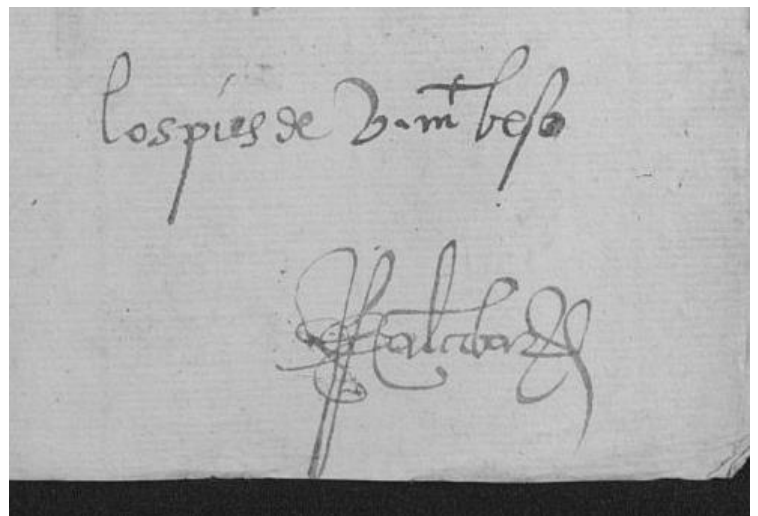 los pies de v. mt beso